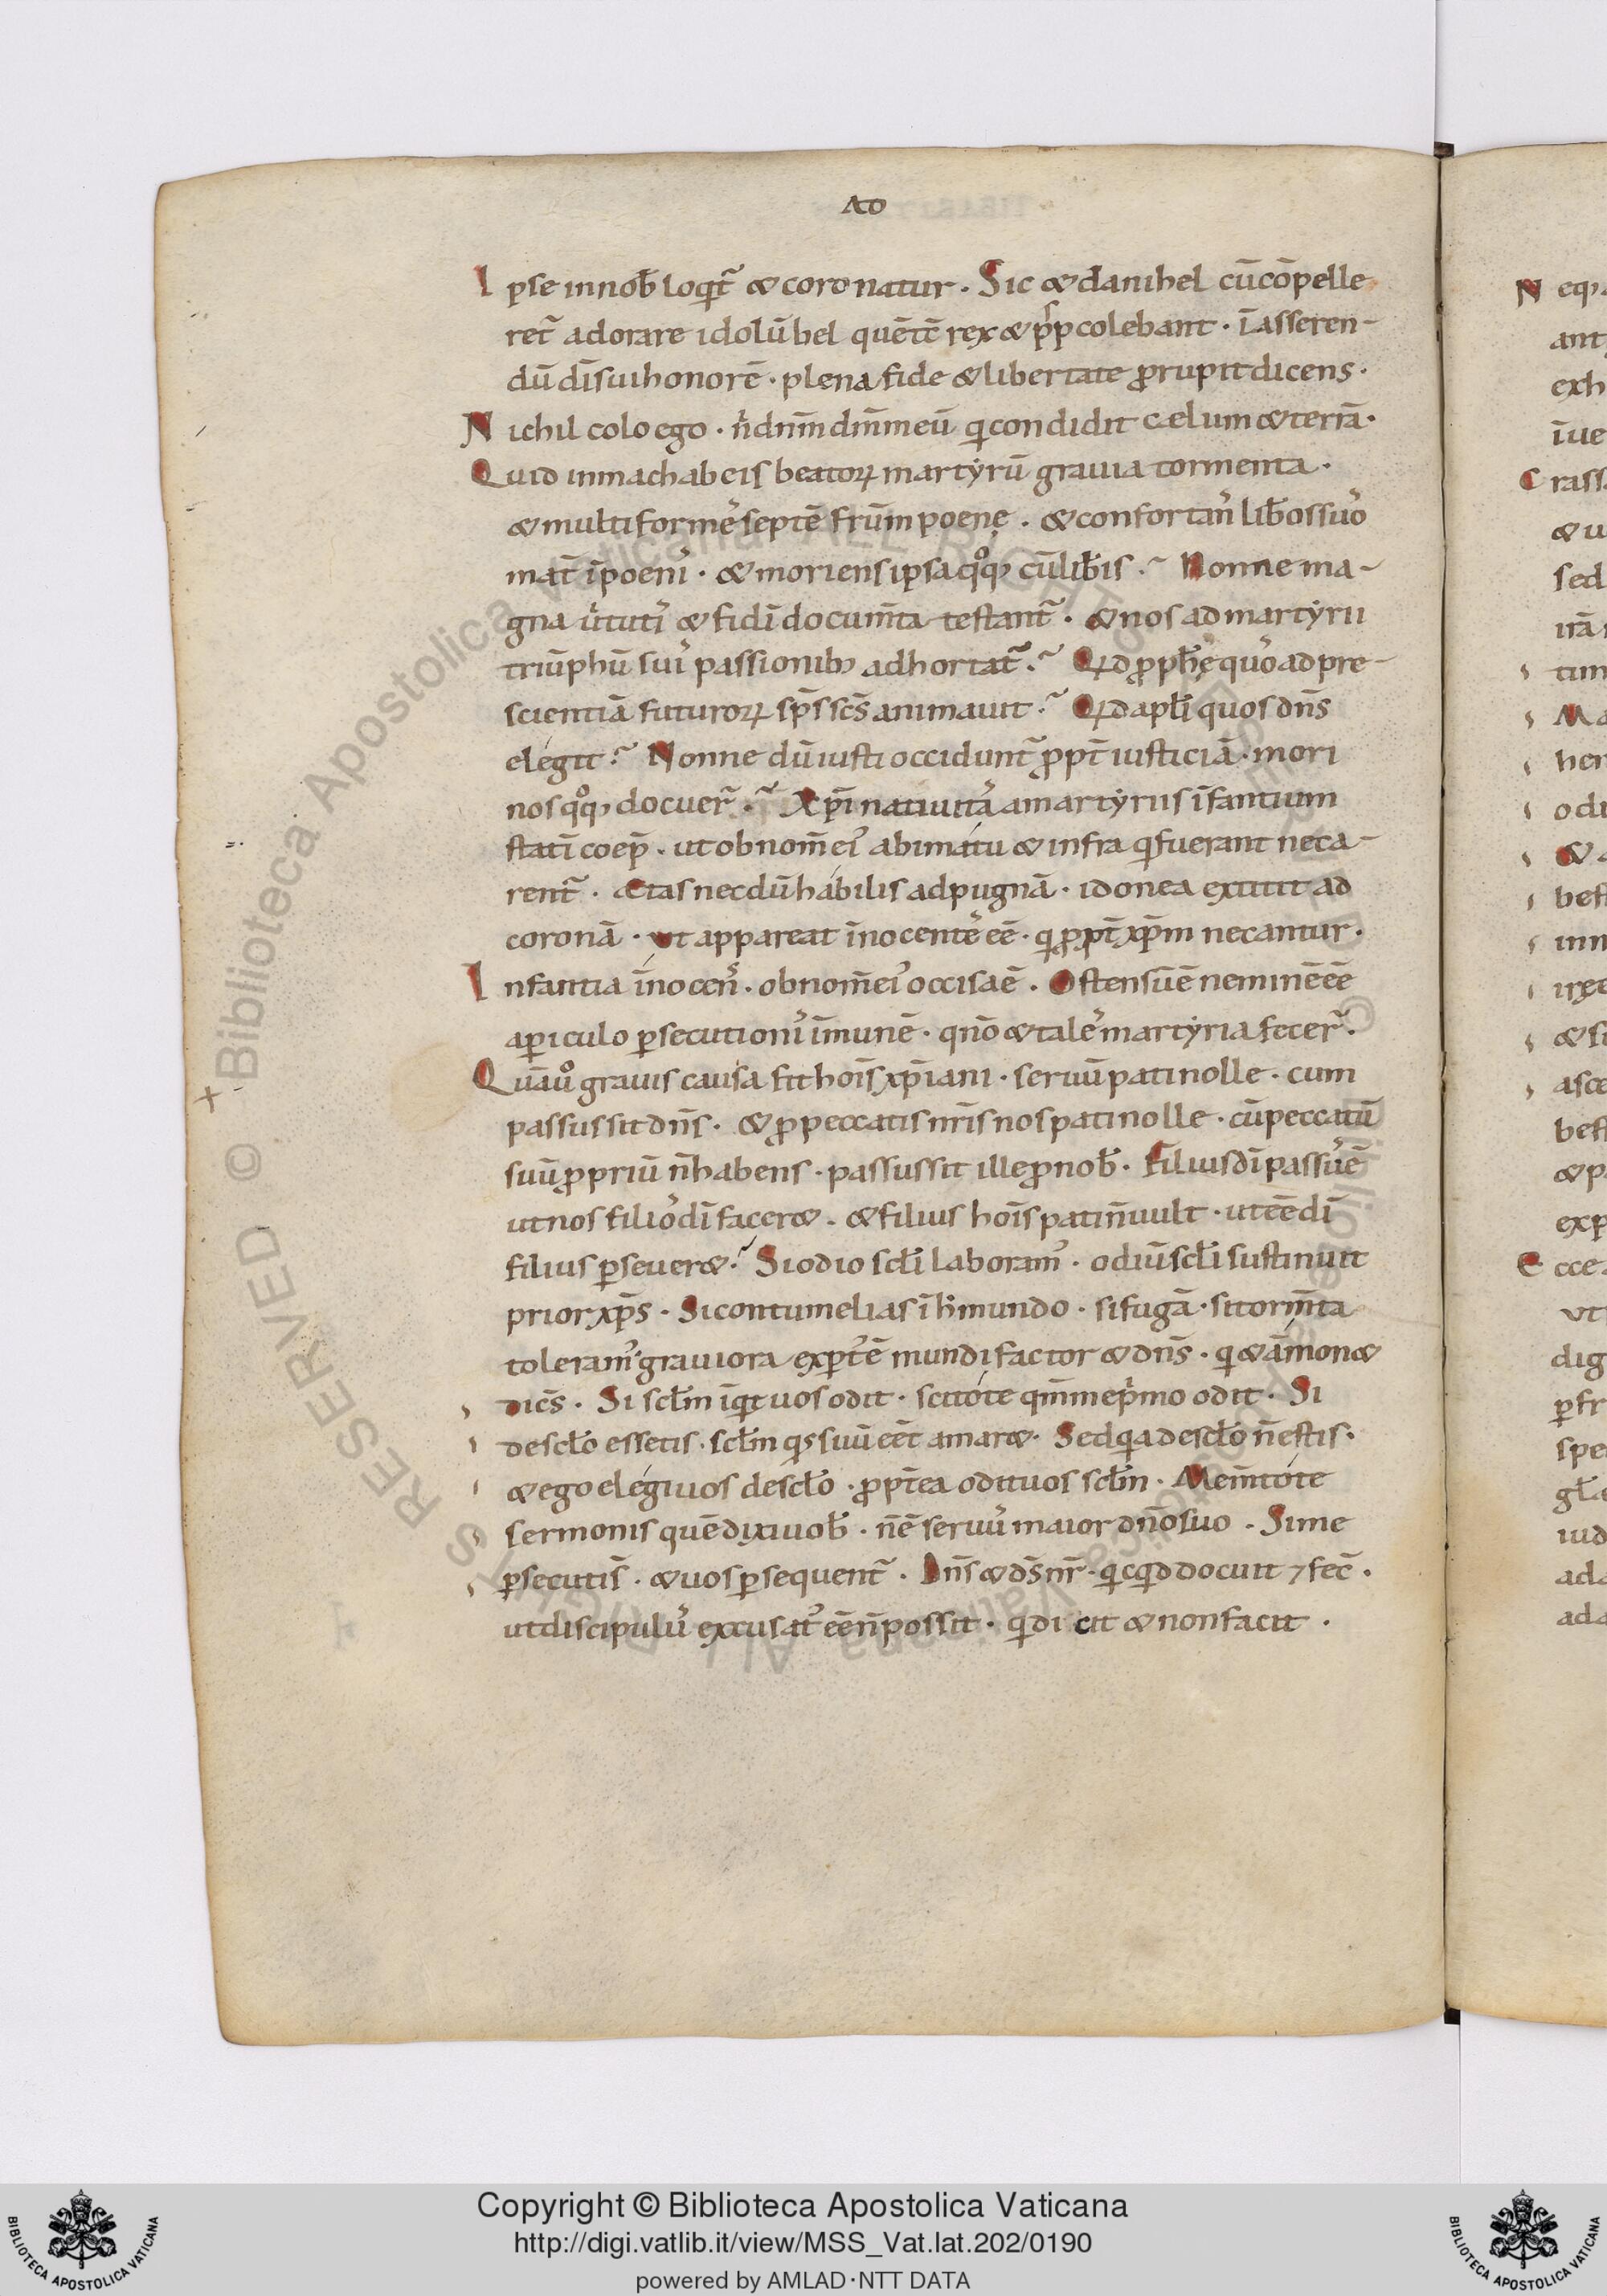 AD
Ipse in nob̄ loqit̄ & coronatur. Sic & danihel cū cōpelle
ret̄ adorare idolū bel quē tc̄ rex & ppl̄s colebant. ī asseren-
dū dī sui honorē. plena fide & libertate prorupit dicens.
Nichil colo ego. n̄ dnm̄ dm̄ meū qi condidit cælum & terrā.
Quid in machabeis beatoꝝ martyrū gravia tormenta.
& multiforme᾽ septē frūm poenę. & confortans lib̄os suo᾽
mat̄ ī poeni᾽. & moriens ipsa qoq; cū lib̄is. Nonne ma-
gna v̄tuti᾽ & fidī documt̄a testant̄. & nos ad martyrii
triūphū sui᾽ passionib; adhortat̄. Qd proph̄ę quo᾽ ad pre-
scientiā futuroꝝ sp̄s sc̄s animavit Qd apl̄i quos dn̄s
elegit Nonne dū iusti occidunt̄ propt̄ iusticiā. mori
nos qoq; docuer̄. Xp̄i nativita᾽ a martyriis īfantium
statī coep̄. ut ob nom̄ ei᾽ a bimatu & infra qi fuerant neca-
rent̄. ætas necdū habilis ad pugnā. idonea extitit ad
coronā. ut appareat īnocente᾽ eē. qi propt̄ xp̄m necantur.
Infantia īnocens. ob nom̄ ei᾽ occisa ē. Ostensū ē neminē eē
a piculo psecutioni᾽ īmunē. qn̄o & tale᾽ martyria fecer̄.
Quā v̊ gravis causa sit hoīs xp̄iani. servū pati nolle. cum
passus sit dn̄s. & pro peccatis nr̄is nos pati nolle. cū peccatū
suū propriū n̄ habens. passus sit ille pro nob̄. Filius dī passu᾽ ē
ut nos filio᾽ dī facer&. & filius hoīs pati n̄ vult. ut eē dī
filius psever& Si odio scl̄i laboram᾽. odiū scl̄i sustinuit
prior xp̄s. Si contumelias ī h̄ mundo. si fugā. si tormt̄a
toleram᾽ graviora exptu᾽ ē mundi factor & dn̄s. qi & āmon&
dicēs. Si scl̄m īqit vos odit. scitote qm̄ me pimo odit. Si
de scl̄o essetis. scl̄m qs suū eēt amar&. Sed qia de scl̄o n̄ estis.
& ego elegi vos de scl̄o. propt̄ea odit vos scl̄m. Meīntote
sermonis quē dixi vob̄. n̄ ē servu᾽ maior dn̄o suo. Si me
psecuti s̄. & vos psequent̄. Dn̄s & ds̄ nr̄. qicqid docuit ⁊ fec̄.
ut discipulu᾽ excusat᾽ eē n̄ possit. qi dicit & non facit.
Copyright © Biblioteca Apostolica Vaticana
http://digi.vatlib.it/view/MSS_Vat.lat.202/0190
powered by AMLAD·NTT DATA